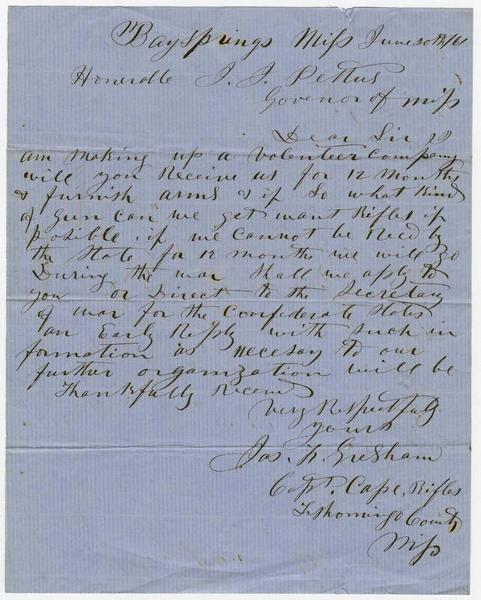 Baysprings Miss June 20th/61
Honerable J. J. Pettus
Govenor of miss
Dear Sir I
am making up a volenteer Company
will you Receive us for 12 months
& furnish arms & if so what kind
of gun can we get want Rifles if
posible; if we cannot be Recd by
the State for 12 months we will go
During the war Shall we apply to
you or Direct to the Secretary
of war for the Confederate States
an Early Reply with such in
formation as necesay to our
further organization will be
Thankfully recevd
Very Respectfuly
yours
Jas. H. Gresham
Capt. Cape. Rifles
Tishomingo County
Miss